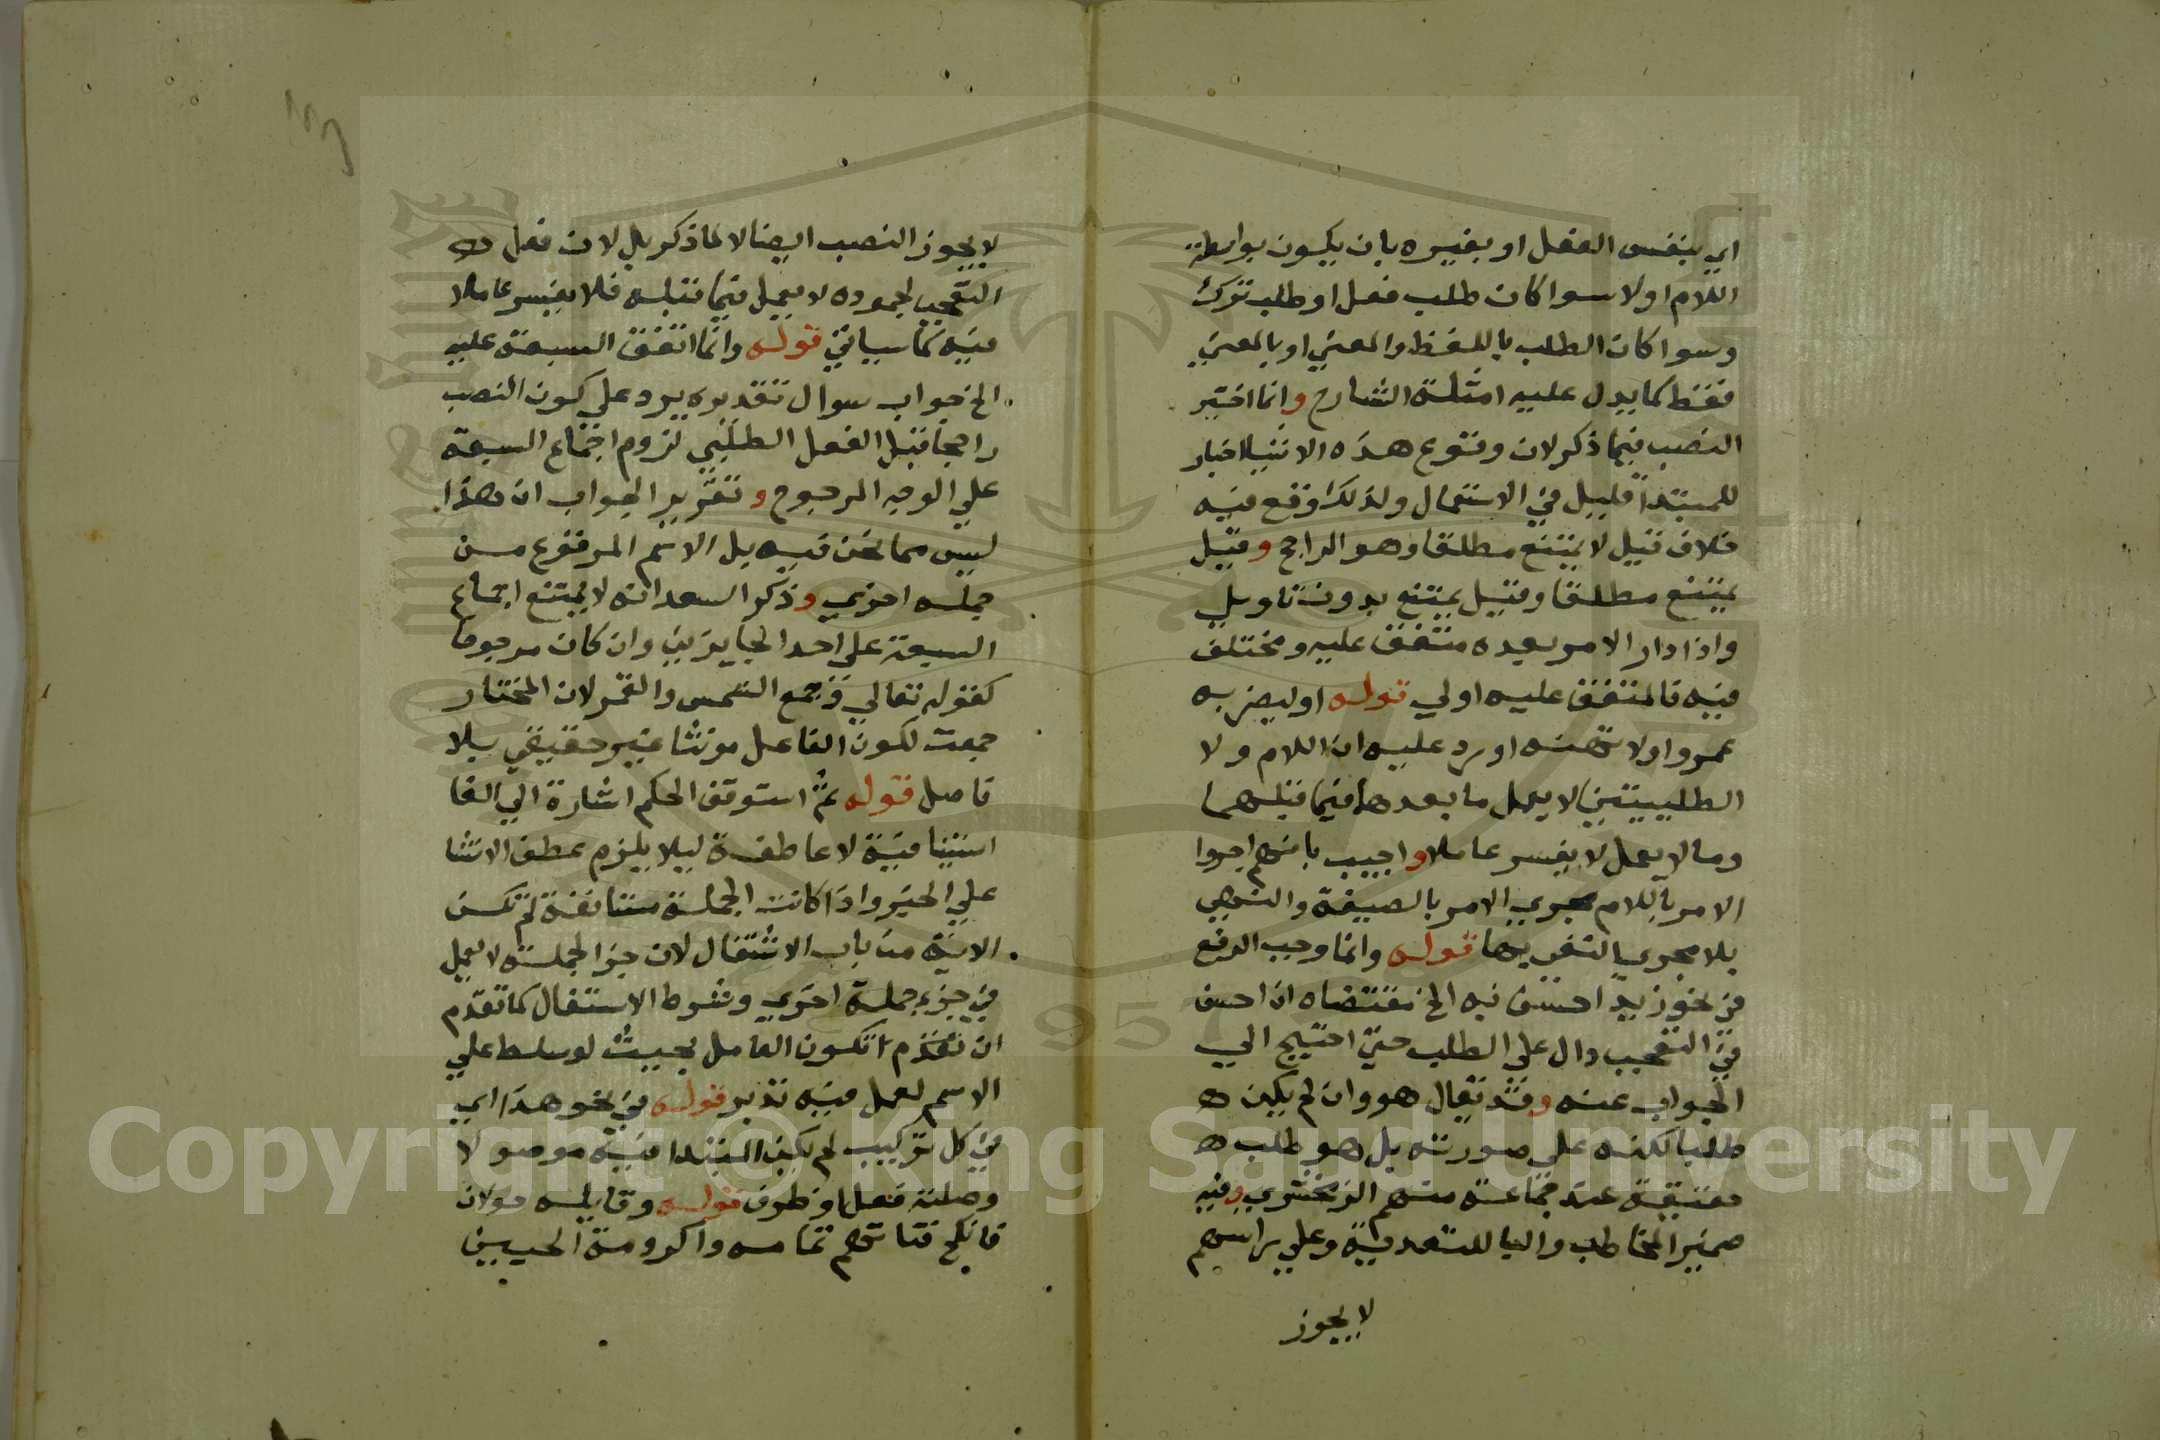 اي بنفس الفعل او بغيره بان يكون بواسطة
اللام او لا سوا كان طلب فعل او طلب ترك
وسوا كان الطلب باللفظ والمعني او بالمعني
فقط كما يدل عليه امثلة الشارح وانما اختير
النصب فيما ذكر لان وقوع هذه الاشيا اخبار
للمبتدا قليل في الاستعمال ولذلك وقع فيه
خلاف قيل لا يمتنع مطلقا وهو الراجح وقيل
يمتنع مطلقا وقيل يمتنع بدون تاويل
واذا دار الامر بعيده متفق عليه ومختلف
فيه فالمتفق عليه اولي قوله او ليضربه
عمرو او لا تهنه اورد عليه ان اللام ولا
الطلبيتين لا يعمل ما بعدهما فيما قبلهما
وما لا يعمل لا يفسر عاملا واجيب بانهم اجروا
الامر باللام مجري الامر بالصيغة والنهي
بلا مجري النفي بها قوله وانما وجب الرفع
في نحو زيد احسن به الخ مقتضاه ان احسن
في التعجب دال علي الطلب حتي احتيج الي
الجواب عنه وقد يقال هو وان لم يكن
طلبا لكنه علي صورته بل هو طلب
حقيقة عند جماعة منهم الزمخشري وفيه
ضمير المخاطب والبا للتعدية وعلي رايهم
لا يجوز
لا يجوز النصب ايضا لا لما ذكر بل لان فعل
التعجب لجموده لا يعمل فيما قبله فلا يفسر عاملا
فيه كما سياتي قوله وانما اتفق السبعة عليه
الخ جواب سوال تقديره يرد علي كون النصب
راجحا قبل الفعل الطلبي لزوم اجماع السبعة
علي الوجه المرجوح وتقرير الجواب ان هذا
ليس مما نحن فيه بل الاسم المرفوع من
جملة اخري وذكر السعد انه لا يمتنع اجماع
السبعة علي احد الجايزين وان كان مرجوحا
كقوله تعالي وجمع الشمس والقمر لان المختار
جمعت لكون الفاعل مونثا غير حقيقي بلا
فاصل قوله ثم استوقف الحكم اشارة الي الفا
استينافية لا عاطفة ليلا يلزم عطف الانشا
علي الخبر واذا كانت الجملة مستانفة لم تكن
الاية من باب الاشتغال لان جزا الجملة لا يعمل
في جزء جملة اخري وشرط الاشتغال كما تقدم
ان تقدم ان يكون العامل بحيث لو سلط علي
الاسم لعمل فيه تدبر قوله في نحو هذا اي
في كل تركيب لم يكن المبتدا فيه موصولا
وصلته فعل او ظرف قوله وقايلة خولان
فانكح فتاتهم تمامه واكرومة الحيين